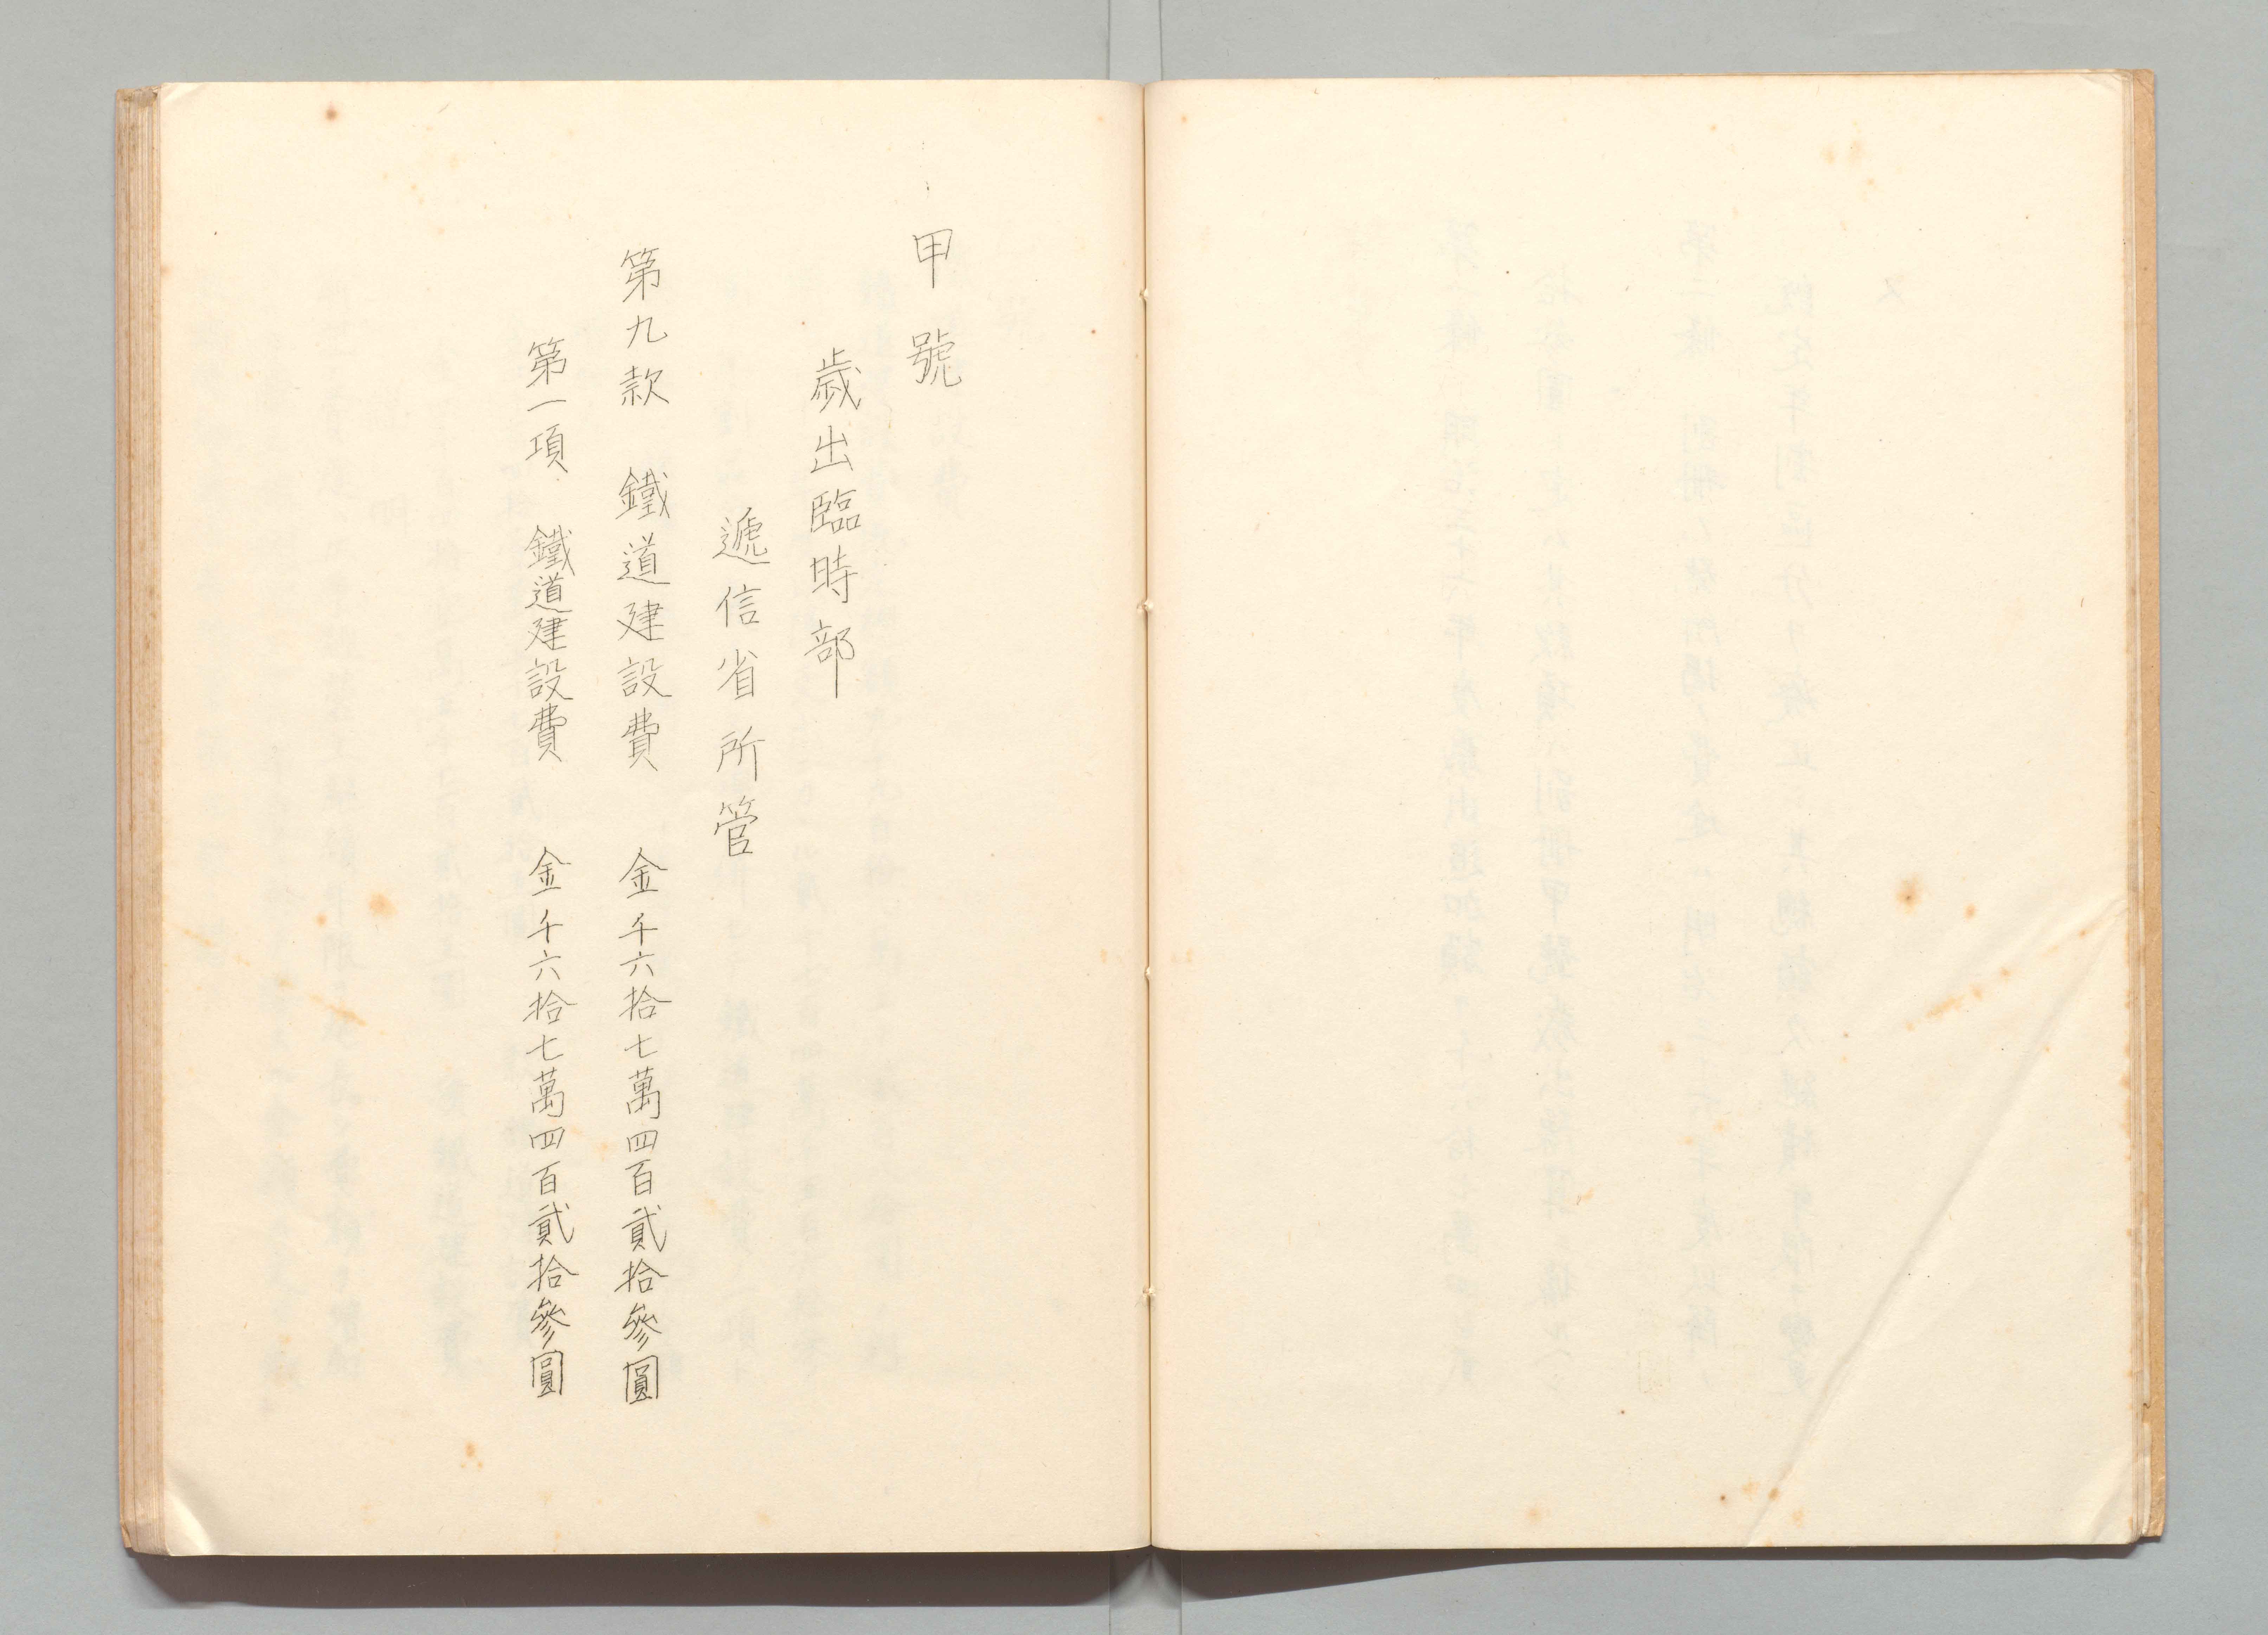 甲號
歲出臨時部
遞信省所管
第九款 鐵道建設費 金千六拾七萬四百貳拾參圓
第一項 鐵道建設費 金千六拾七萬四百貳拾參圓